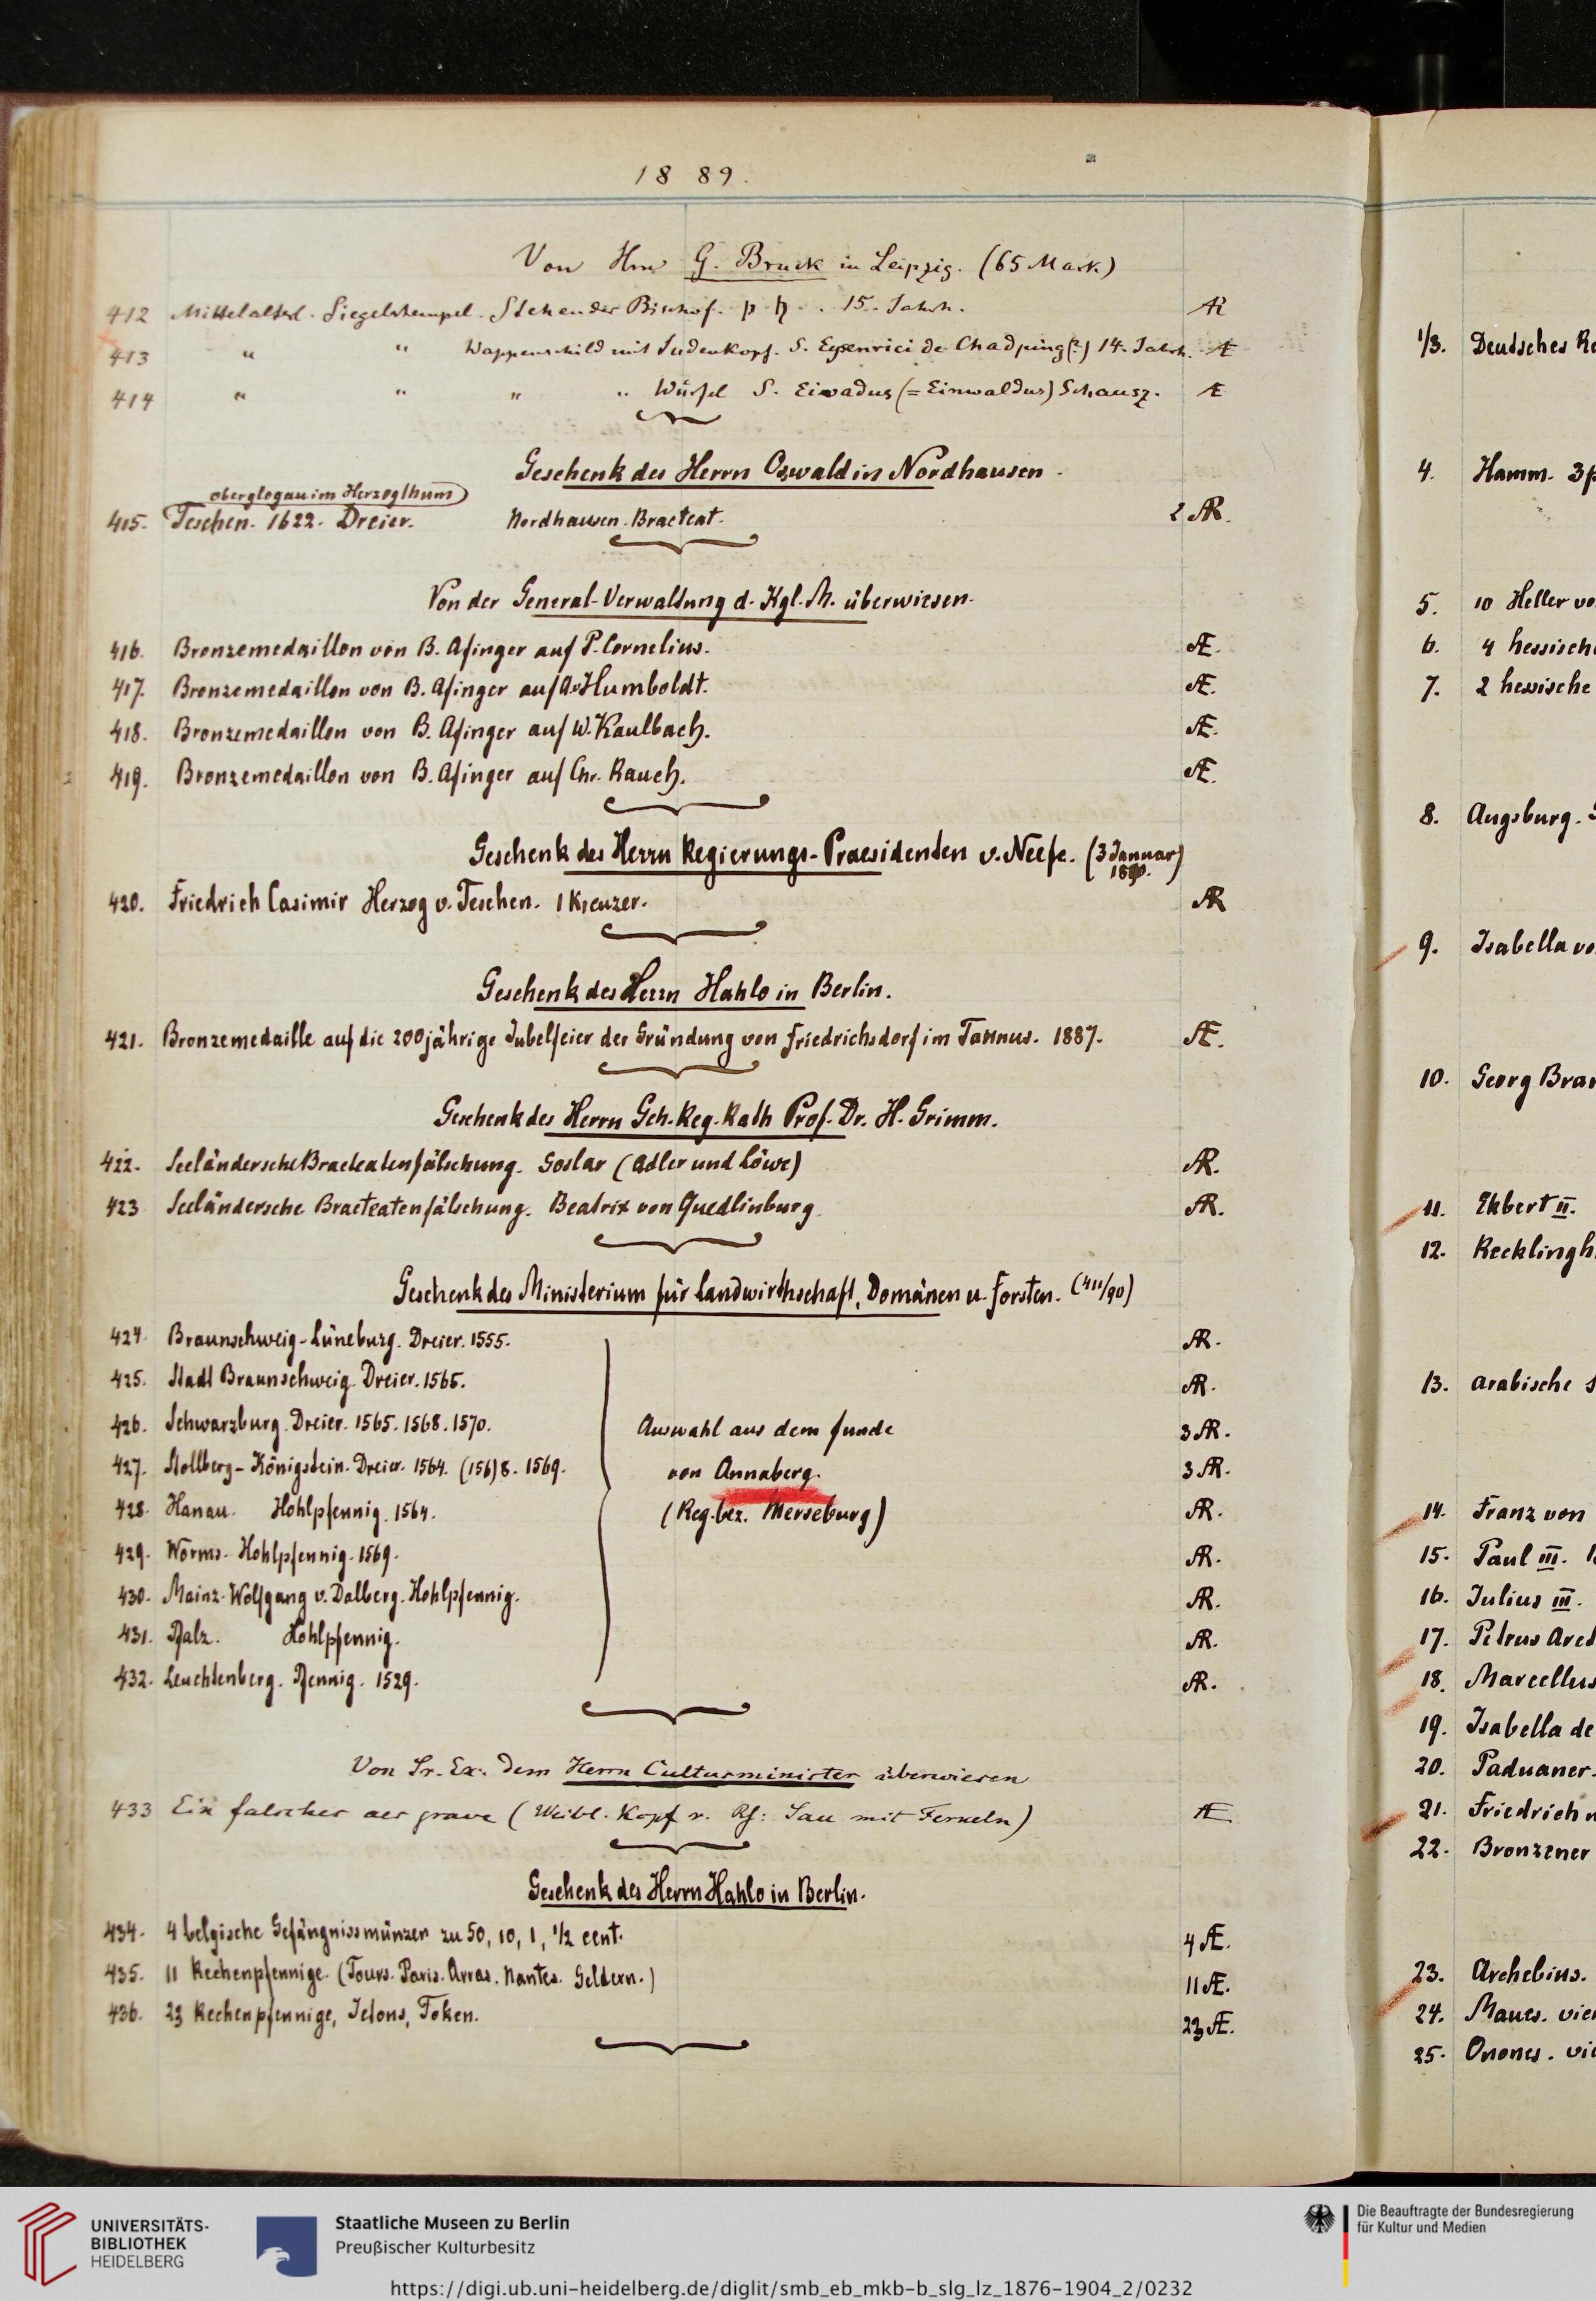 1889.
Von Hrn G. Bruck in Leipzig. (65 Mark)
412 Mittelalterl. Siegelstempel. Stehender Bischof. p h . 15. Jahrh. AR
413 " " Wappenschild mit Judenkopf. S. Eysenrici de Chadping(?) 14. Jahrh. Æ
414 " " " " Würfel S. Eiwadus (= Einwaldus) Schausz. Æ
Geschenk des Herrn Oswald in Nordhausen.
oberglogau im Herzogthum
415. Teschen. 1622. Dreier. Nordhausen. Bracteat. 2 AR.
Von der General-Verwaltung d. Kgl. M. überwiesen.
416. Bronzemedaillon von B. Afinger auf P. Cornelius. Æ.
417. Bronzemedaillon von B. Afinger auf A.v.Humboldt. Æ.
418. Bronzemedaillon von B. Afinger auf W. Kaulbach. Æ.
419. Bronzemedaillon von B. Afinger auf Chr. Rauch. Æ.
Geschenk des Herrn Regierungs-Praesidenten v. Neefe. (3 Januar
1890.)
420. Friedrich Casimir Herzog v. Teschen. 1 Kreuzer. AR
Geschenk des Herrn Hahlo in Berlin.
421. Bronzemedaille auf die 200jährige Jubelfeier der Gründung von Friedrichsdorf im Taunus. 1887. Æ.
Geschenk des Herrn Geh. Reg. Rath Prof. Dr. H. Grimm.
422. Seeländersche Bracteatenfälschung. Goslar (Adler und Löwe) AR.
423 Seeländersche Bracteatenfälschung. Beatrix von Quedlinburg. AR.
Geschenk des Ministerium für Landwirthschaft, Domänen u. Forsten. (411/90)
424. Braunschweig-Lüneburg. Dreier. 1555. AR.
425. Stadt Braunschweig. Dreier. 1565. AR.
426. Schwarzburg. Dreier. 1565. 1568. 1570. Auswahl aus dem Funde 3 AR.
427. Stollberg-Königstein. Dreier. 1564. (156)8. 1569. von Annaberg. 3 AR.
428. Hanau. Hohlpfennig. 1564. (Reg. bez. Merseburg) AR.
429. Worms. Hohlpfennig. 1569. AR.
430. Mainz. Wolfgang v. Dalberg. Hohlpfennig. AR.
431. Pfalz. Hohlpfennig. AR.
432. Leuchtenberg. Pfennig. 1529. AR.
Von Sr. Ex. dem Herrn Cultusminister überwiesen
433 Ein falscher aes grave (Weibl. Kopf r. Rf: Sau mit Ferkeln) Æ
Geschenk des Herrn Hahlo in Berlin.
434. 4 belgische Gefängnissmünzen zu 50, 10, 1, 1/2 cent. 4 Æ.
435. 11 Rechenpfennige. (Tours. Paris. Arras. Nantes. Geldern.) 11 Æ.
436. 23 Rechenpfennige, Jetons, Token. 23 Æ.
1/3. Deutsches Re
4. Hamm. 3
5. 10 Heller vo
6. 4 hessisch
7. 2 hessische
8. Augsburg.
9. Isabella vo
10. Georg Bran
11. Ekbert II.
12. Recklingh
13. arabische
14. Franz von
15. Paul III.
16. Julius III.
17. Petrus Aret
18. Marcellus
19. Isabella de
20. Paduaner.
21. Friedrich
22. Bronzener
23. Archebius.
24. Maues. vie
25. Onones. vi
UNIVERSITÄTS-
BIBLIOTHEK
HEIDELBERG
Staatliche Museen zu Berlin
Preußischer Kulturbesitz
Die Beauftragte der Bundesregierung
für Kultur und Medien
https://digi.ub.uni-heidelberg.de/diglit/smb_eb_mkb-b_slg_lz_1876-1904_2/0232